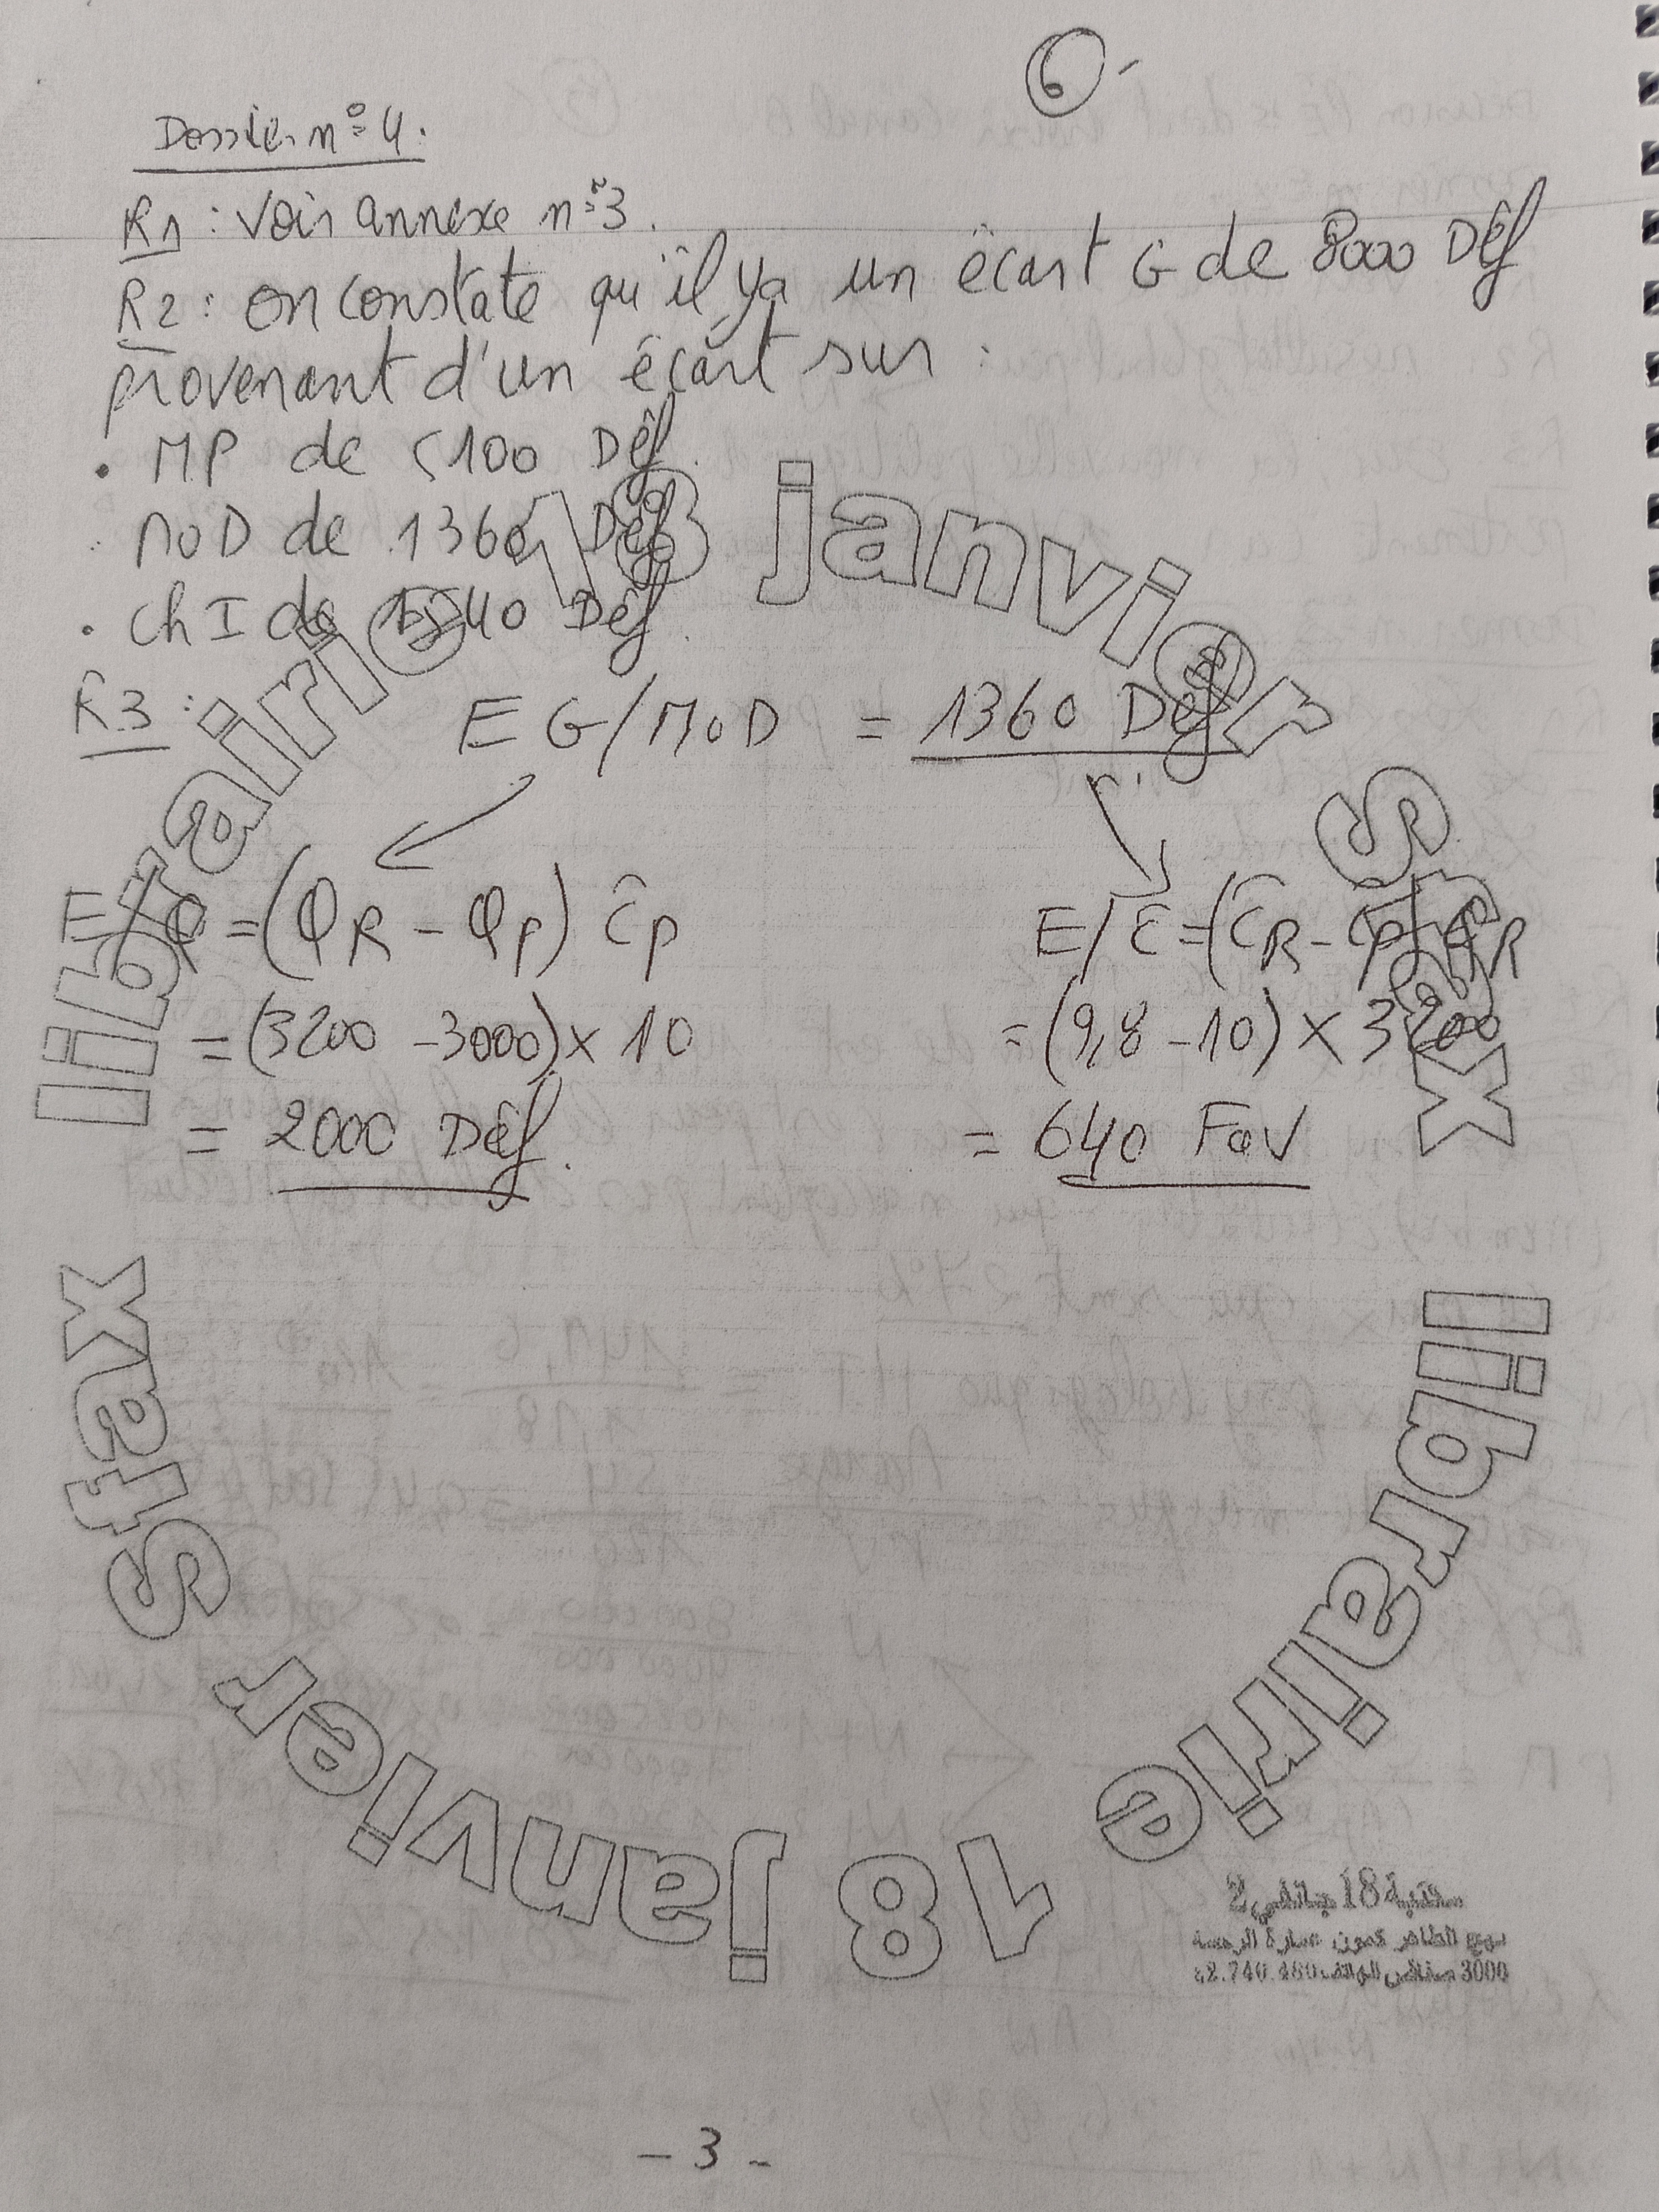 6-
Dossier n°4.
R1 : Voir annexe n°3.
R2 : on constate qu'il ya un écart G de 8000 Déf
provenant d'un écart sur :
• MP de 5100 Déf.
• MOD de 1360 Déf
• Ch I de 1540 Déf.
R3 : E G/MOD = 1360 Déf
E/Q = (QR - QP) ĈP
E/Ĉ = (ĈR - ĈP) QR
= (3200 - 3000) x 10
= (9,8 - 10) x 3200
= 2000 Déf.
= 640 Fav
librairie 18 janvier Sfax
librairie 18 janvier Sfax
مكتبة 18 جانفي 2
نهج الطاهر كمون عمارة الرحمة
3000 صفاقس الهاتف
- 3 -